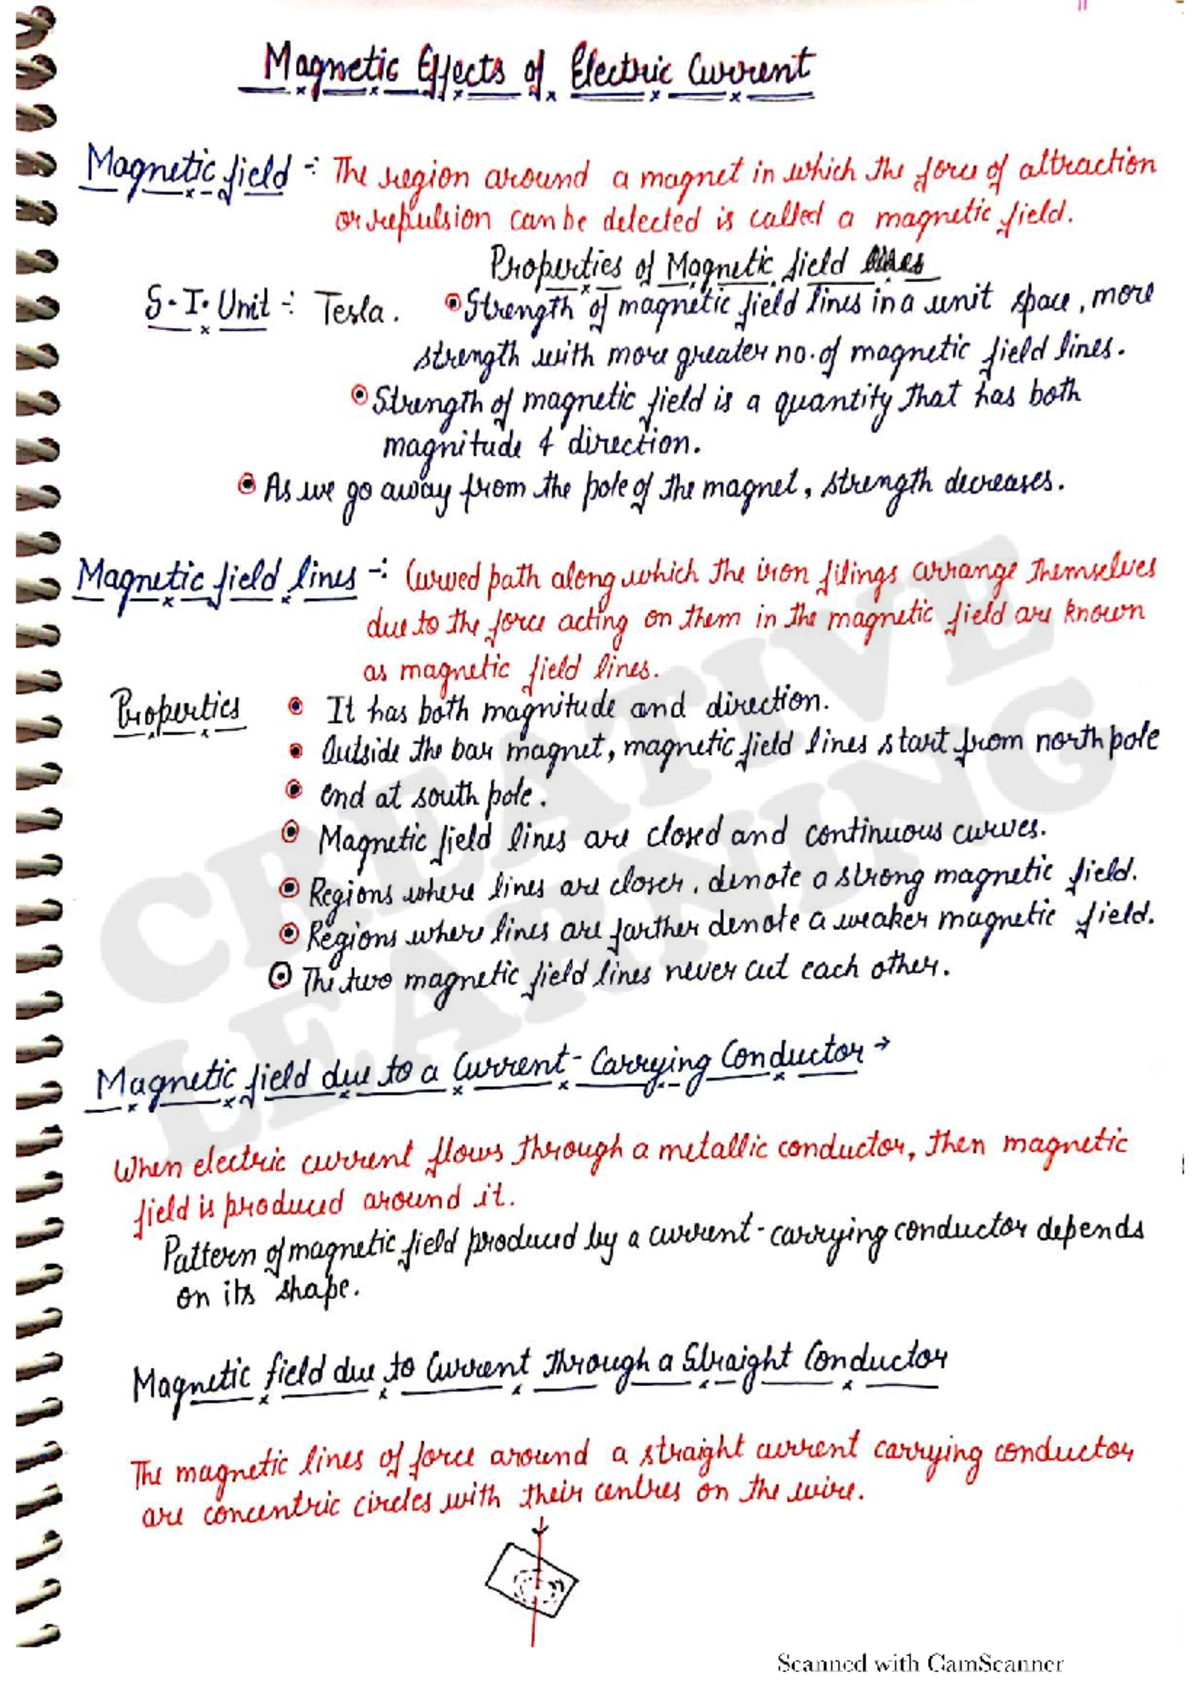 Magnetic Effects of Electric Current
Magnetic field -: The region around a magnet in which the force of attraction
or repulsion can be detected is called a magnetic field.
Properties of Magnetic field lines
S.I. Unit -: Tesla. Strength of magnetic field lines in a unit space, more
strength with more greater no. of magnetic field lines.
Strength of magnetic field is a quantity that has both
magnitude & direction.
As we go away from the pole of the magnet, strength decreases.
Magnetic field lines -: Curved path along which the iron filings arrange themselves
due to the force acting on them in the magnetic field are known
as magnetic field lines.
Properties It has both magnitude and direction.
Outside the bar magnet, magnetic field lines start from north pole
end at south pole.
Magnetic field lines are closed and continuous curves.
Regions where lines are closer, denote a strong magnetic field.
Regions where lines are farther denote a weaker magnetic field.
The two magnetic field lines never cut each other.
Magnetic field due to a Current-Carrying Conductor →
When electric current flows through a metallic conductor, then magnetic
field is produced around it.
Pattern of magnetic field produced by a current-carrying conductor depends
on its shape.
Magnetic field due to Current through a Straight Conductor
The magnetic lines of force around a straight current carrying conductor
are concentric circles with their centres on the wire.
CREATIVE
LEARNING
Scanned with CamScanner